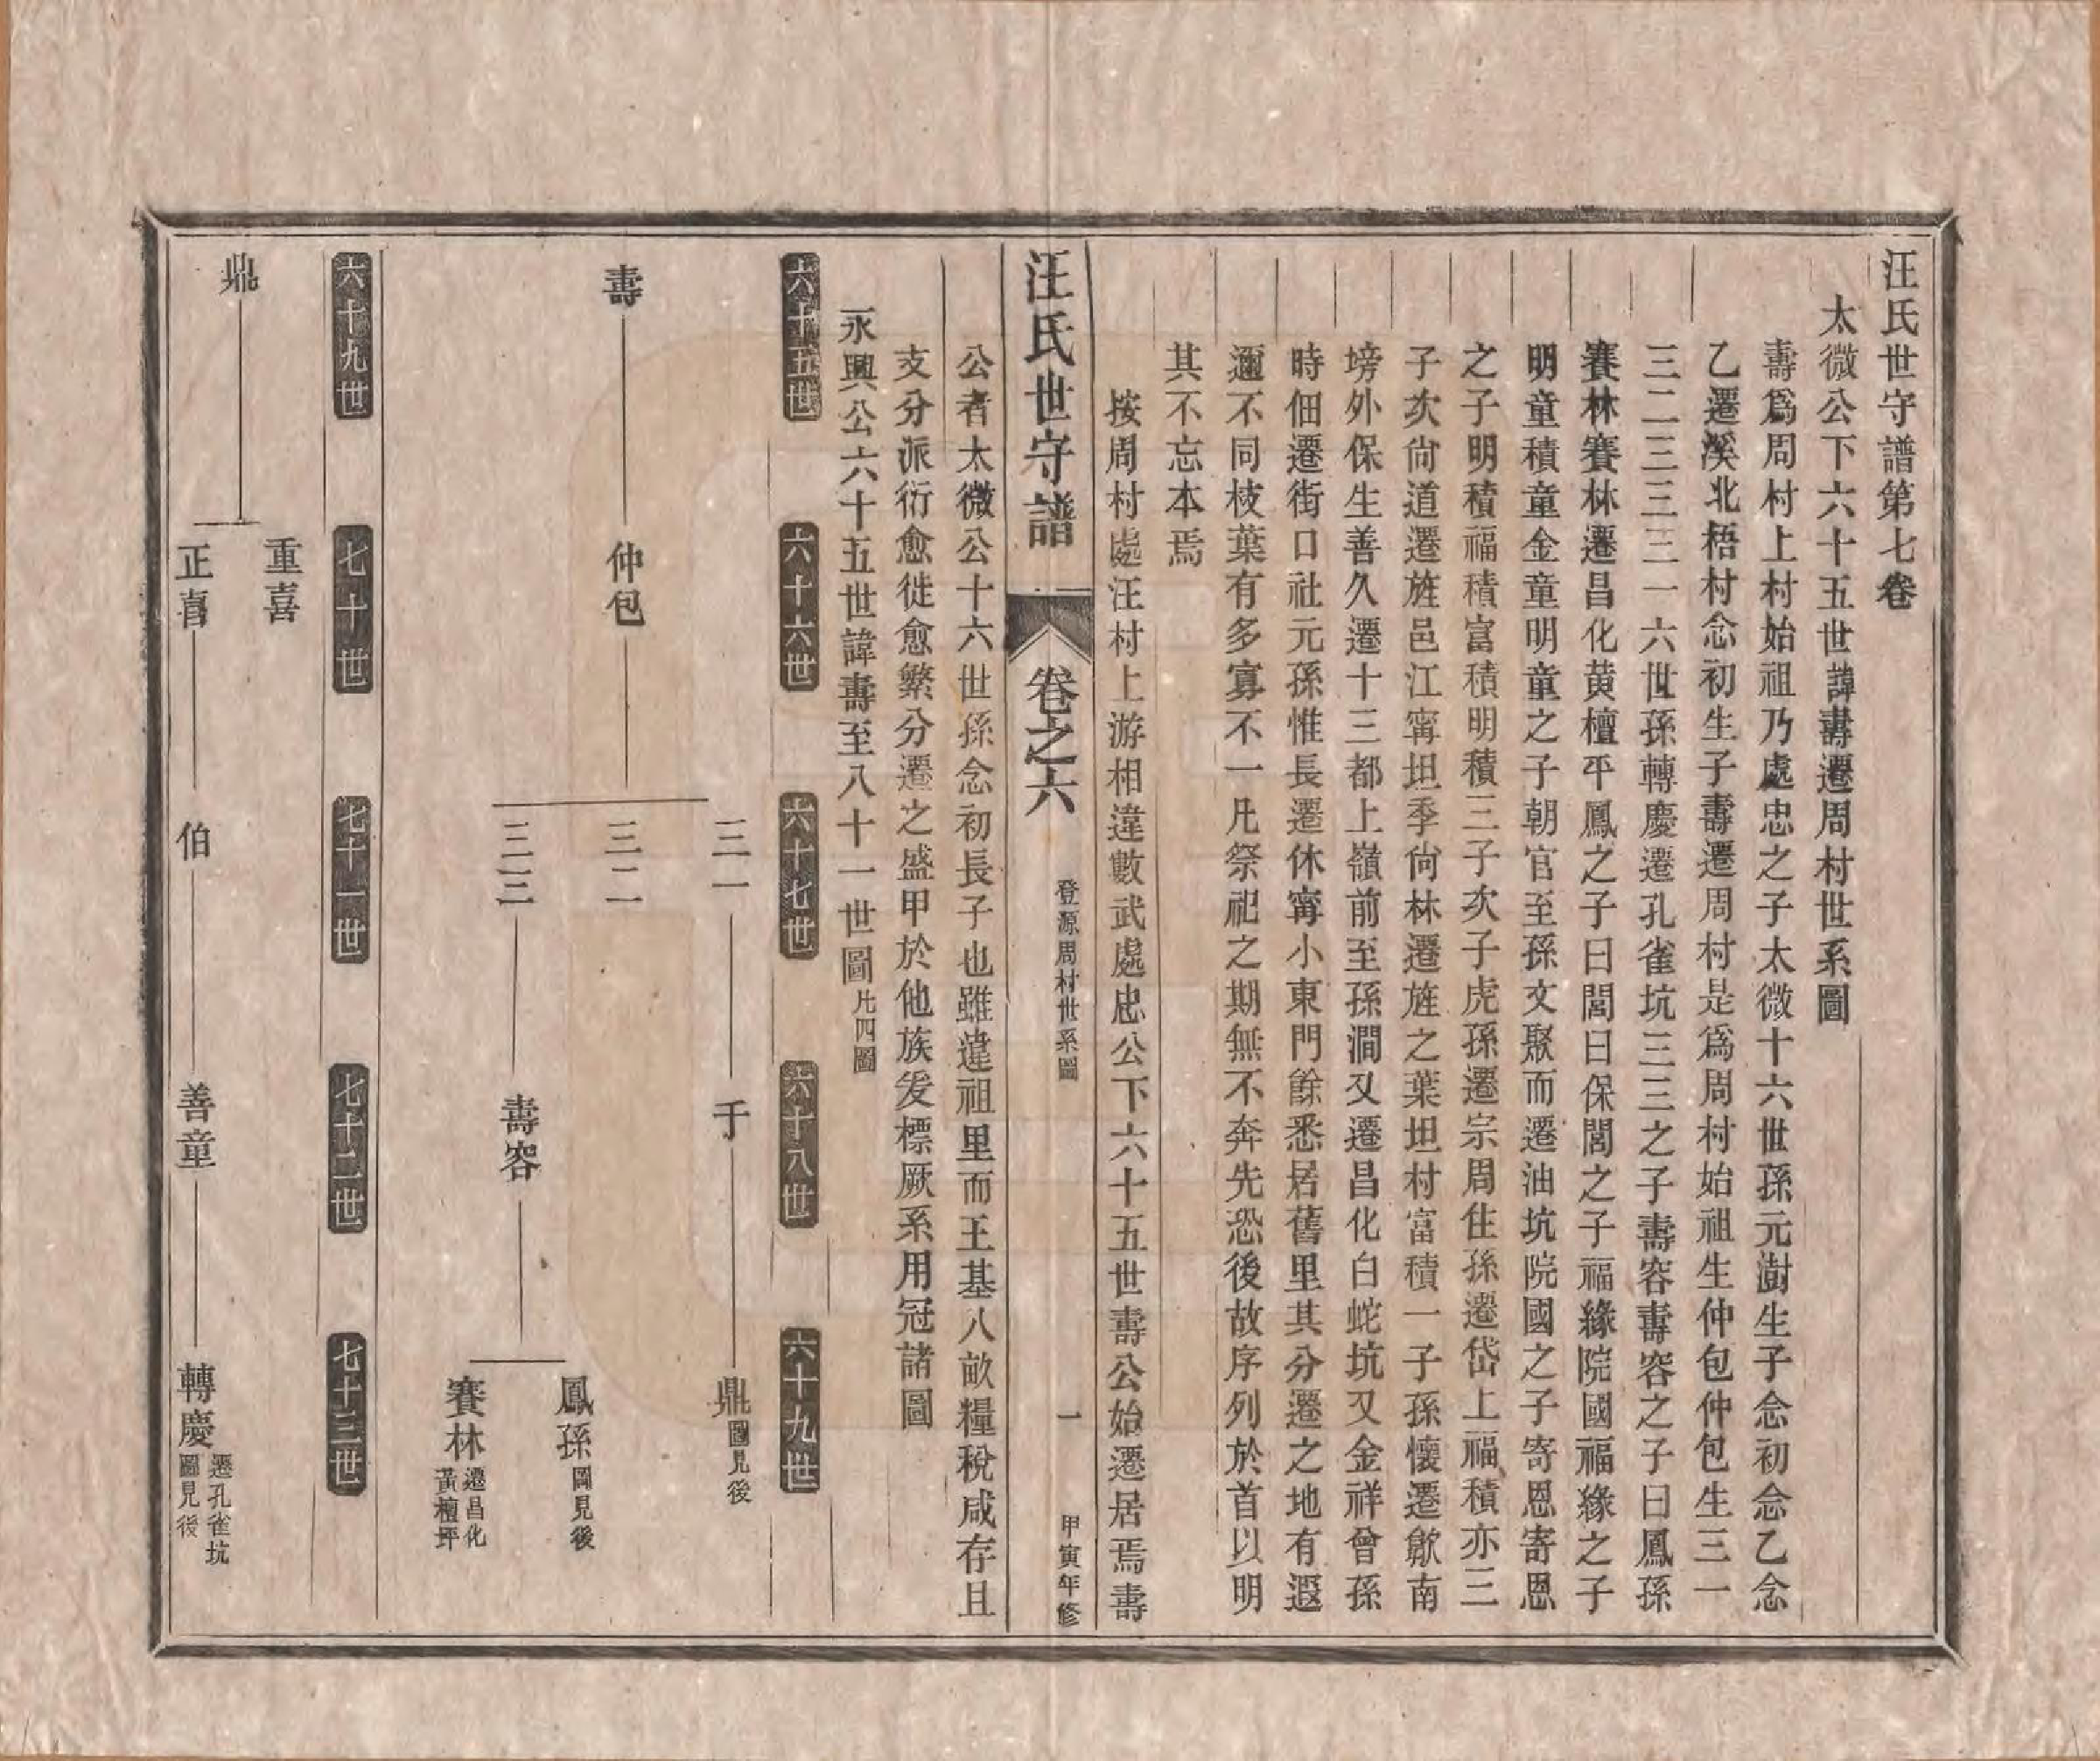 汪氏世守譜第七卷
太微公下六十五世諱壽遷周村世系圖
壽爲周村上村始祖乃處忠之子太微十六世孫元澍生子念初念乙念
乙遷溪北梧村念初生子壽遷周村是爲周村始祖生仲包仲包生三一
三二三三三一六世孫轉慶遷孔雀坑三三之子壽容壽容之子曰鳳孫
賽林賽林遷昌化黄檀平鳳之子曰閏曰保閏之子福緣院國福緣之子
明童積童金童明童之子朝官至孫文聚而遷油坑院國之子寄恩寄恩
之子明積福積富積明積三子次子虎孫遷宗周住孫遷岱上福積亦三
子次尙道遷旌邑江甯坦季尙林遷旌之葉坦村富積一子孫懷遷歙南
塝外保生善久遷十三都上嶺前至孫澗又遷昌化白蛇坑又金祥曾孫
時佃遷街口社元孫惟長遷休甯小東門餘悉居舊里其分遷之地有遐
邇不同枝葉有多寡不一凡祭祀之期無不奔先恐後故序列於首以明
其不忘本焉
按周村處汪村上游相違數武處忠公下六十五世壽公始遷居焉壽
汪氏世守譜
卷之六
登源周村世系圖
一
甲寅年修
公者太微公十六世孫念初長子也雖違祖里而王基八畝糧稅咸存且
支分派衍愈徙愈繁分遷之盛甲於他族爰標厥系用冠諸圖
永興公六十五世諱壽至八十一世圖凡四圖
六十五世
六十六世
六十七世
六十八世
六十九世
壽
仲包
三一
于
鼎圖見後
三二
三三
壽容
鳳孫圖見後
賽林遷昌化黃檀坪
六十九世
七十世
七十一世
七十二世
七十三世
鼎
重喜
正喜
伯
善童
轉慶遷孔雀坑圖見後